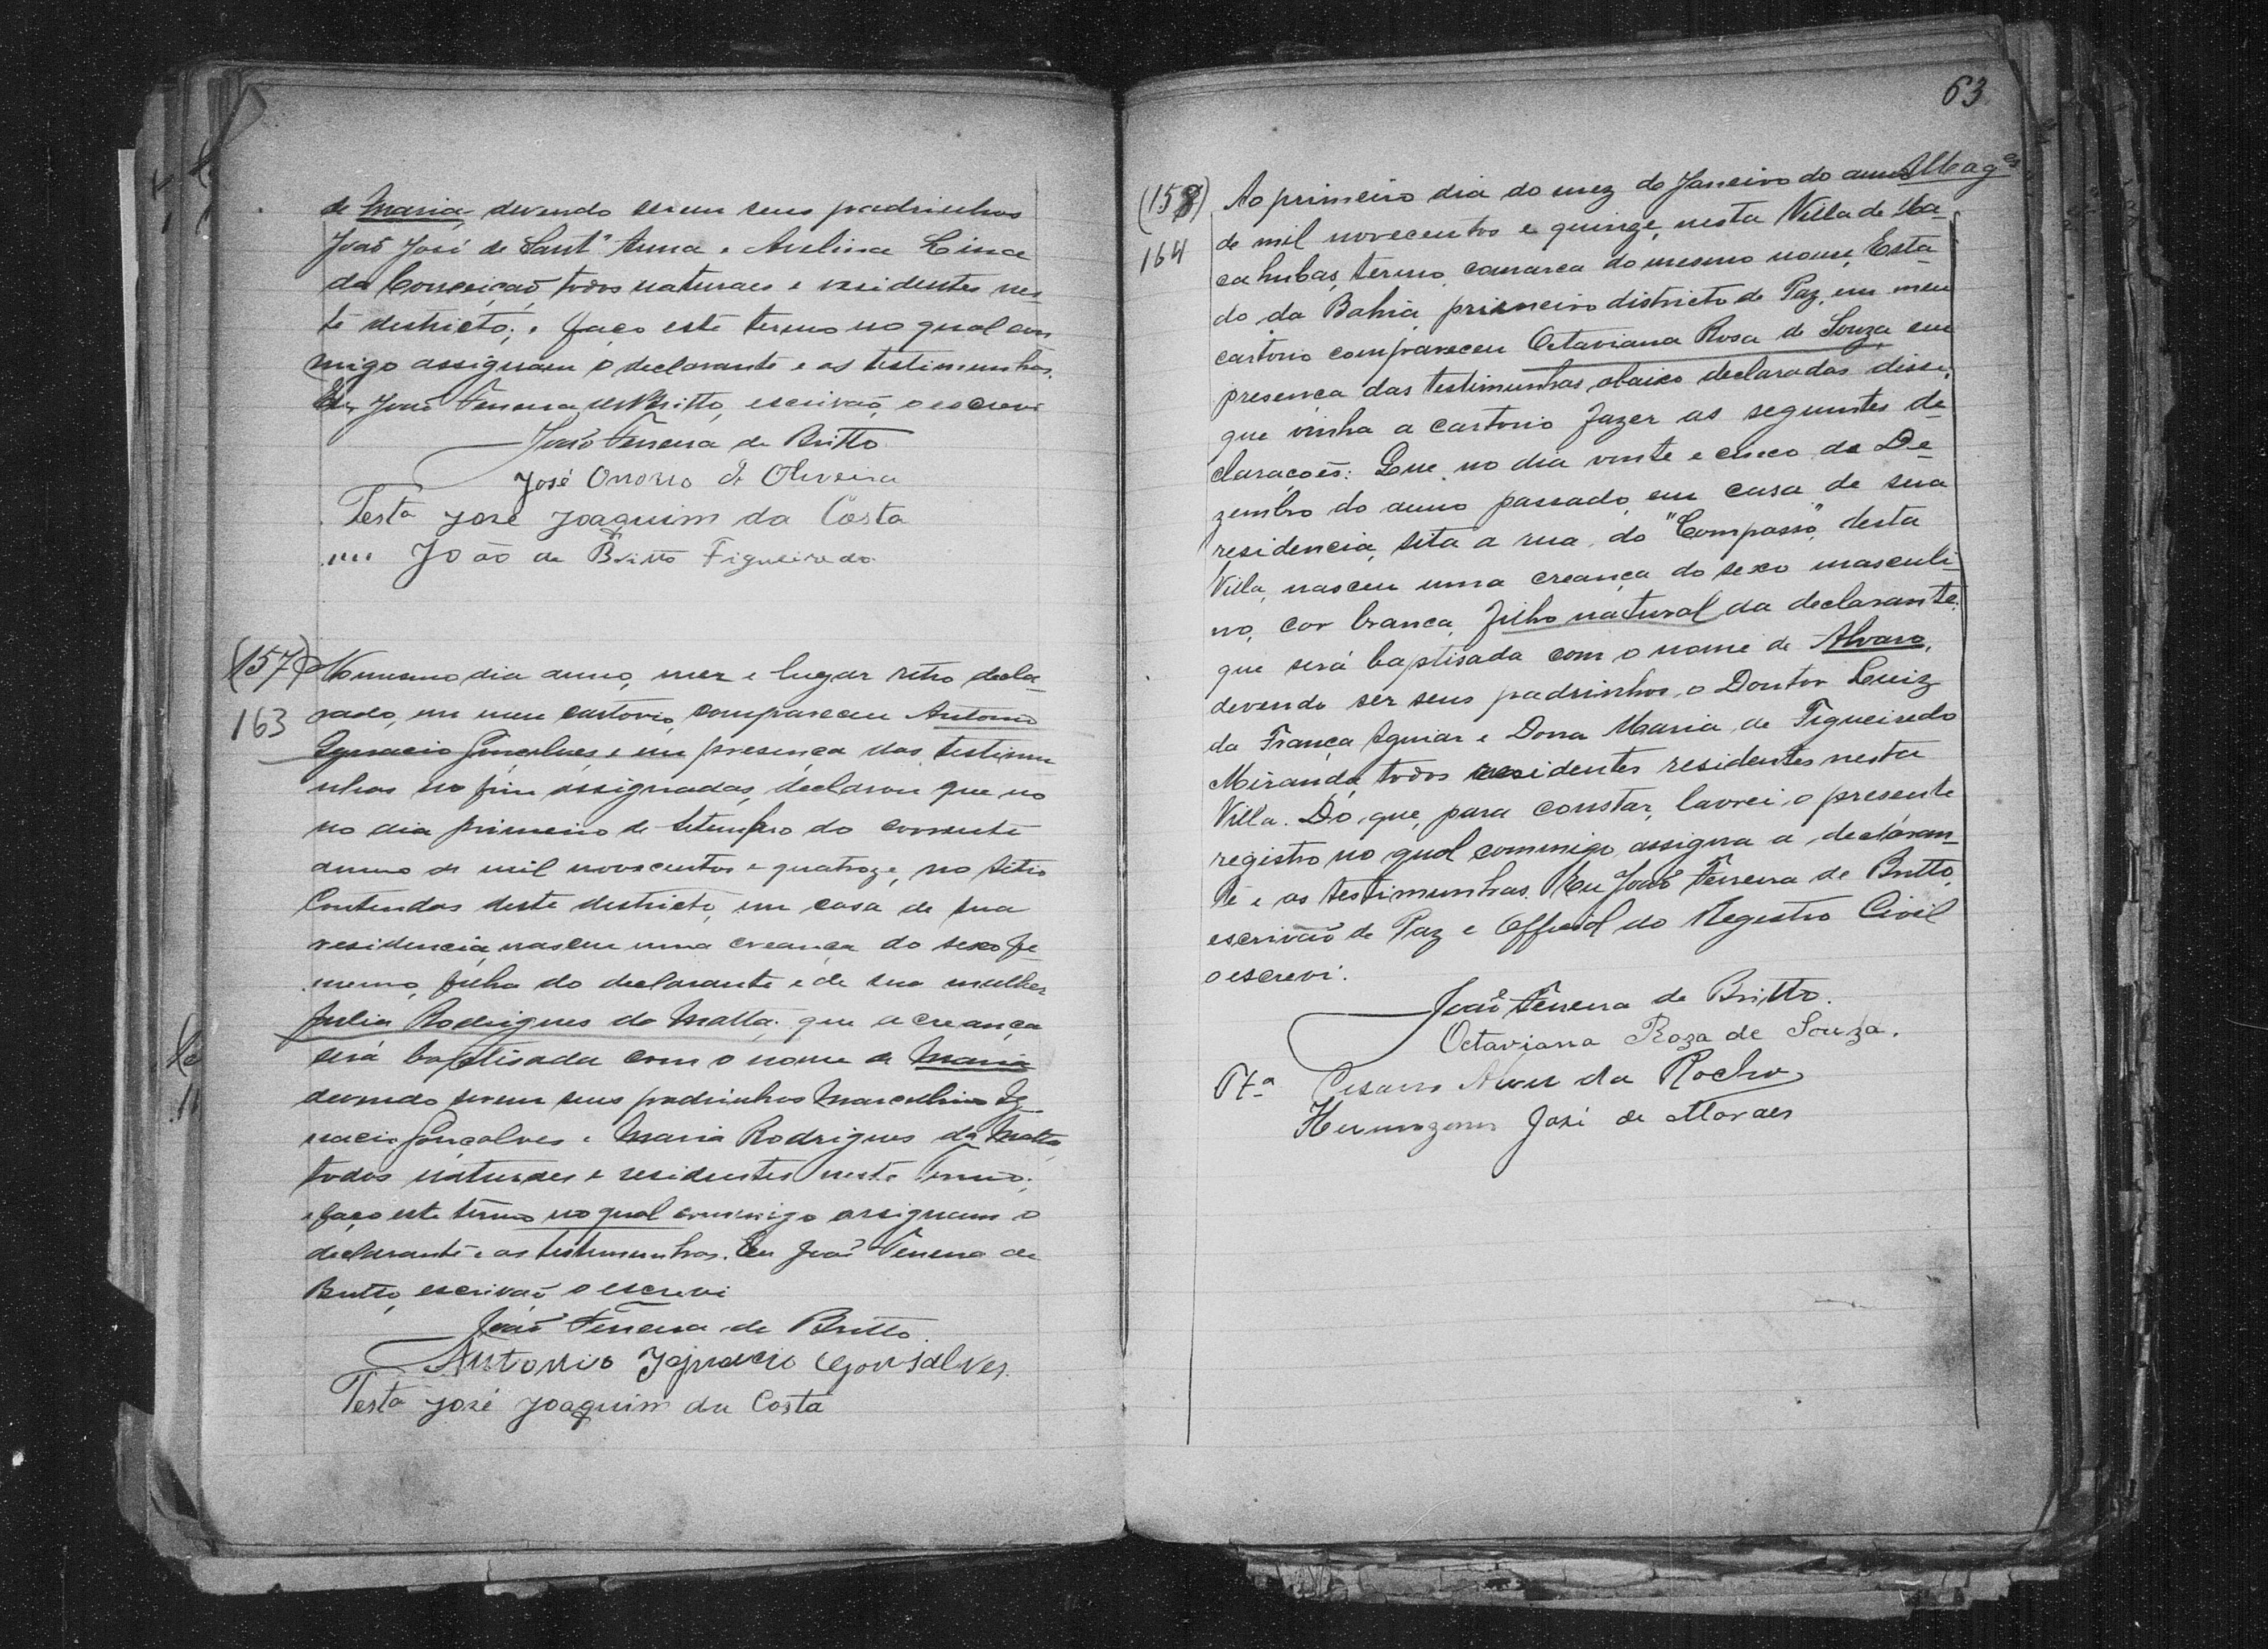 de Maria, devendo serem seus padrinhos
João José de Sant'Anna e Avelina Lina
da Conceição, todos naturaes e residentes nes-
te districto; e faço este termo no qual com
migo assignam o declarante e as testimunhas.
Eu, João Ferreira de Britto, escrivão, o escrevi
João Ferreira de Britto
José Onorio de Oliveira
Testa José Joaquim da Costa
" João de Britto Figueiredo
(157)
163
No mesmo dia anno, mez e lugar retro decla-
rado, em meu cartorio, compareceu Antonio
Ignacio Gonçalves, e em presença das testimu
nhas no fim assignadas, declarou que no
no dia primeiro de Setembro do corrente
anno de mil novecentos e quatroze, no sitio
Contendas deste districto, em casa de sua
residencia, nasceu uma creança do sexo fe-
menino, filha do declarante e de sua mulher
Julia Rodrigues da Matta; que a creança
será baptisada com o nome de Maria
devendo serem seus padrinhos Marcelino Ig-
nacio Gonçalves e Maria Rodrigues da Matta,
todos naturaes e residentes neste Termo;
e faço este termo no qual commigo assignam o
declarante e as testimunhas. Eu João Ferreira de
Britto, escrivão o escrevi
João Ferreira de Britto.
Antonio Ignacio Gonsalves.
Testa José Joaquim da Costa
63
(158)
164
Ao primeiro dia do mez de Janeiro do anno
de mil novecentos e quinze, nesta Villa de Ma-
cahubas, termo, comarca do mesmo nome, Esta-
do da Bahia, primeiro districto de Paz, em meu
cartorio compareceu Octaviana Rosa de Souza, em
presença das testimunhas abaixo declaradas disse,
que vinha a cartorio fazer as seguintes de-
clarações: Que no dia vinte e cinco de De-
zembro do anno passado, em casa de sua
residencia, sita a rua do "Compasso", desta
Villa, nasceu uma creança do sexo masculi-
no, cor branca, filho natural da declarante;
que será baptisada com o nome de Alvaro,
devendo ser seus padrinhos, o Doutor Luiz
da França Aguiar e Dona Maria de Figueiredo
Miranda, todos residentes residentes nesta
Villa. Do que, para constar, lavrei o presente
registro no qual commigo assigna a declaran-
te e as testimunhas. Eu João Ferreira de Britto,
escrivão de Paz e Official do Registro Civil
o escrevi.
João Ferreira de Britto.
Octaviana Roza de Souza.
Tta Cesario Alves da Rocha
Hermogenes José de Moraes